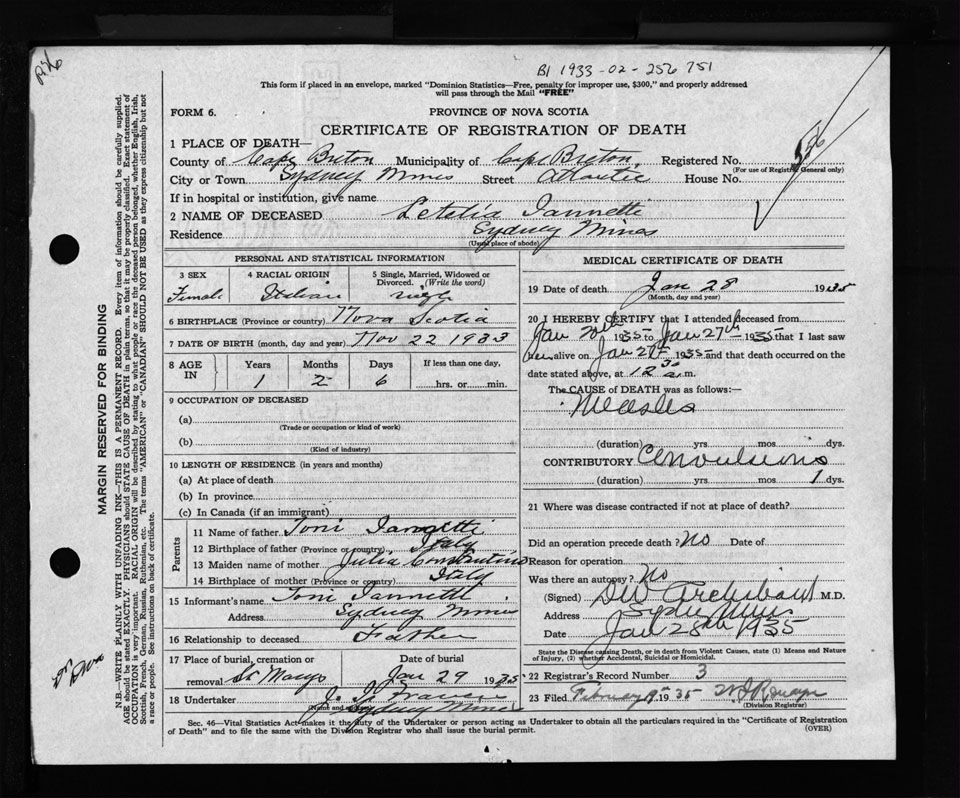 B1 1933-02-256751
This form if placed in an envelope, marked "Dominion Statistics—Free, penalty for improper use, $300," and properly addressed
will pass through the Mail "FREE"
FORM 6.
PROVINCE OF NOVA SCOTIA
CERTIFICATE OF REGISTRATION OF DEATH
1 PLACE OF DEATH—
County of Cape Breton Municipality of Cape Breton Registered No.
(For use of Registrar General only)
City or Town Sydney Mines Street Atlantic House No.
If in hospital or institution, give name
2 NAME OF DECEASED Letelia Iannetti
Residence Sydney Mines
(Usual place of abode)
PERSONAL AND STATISTICAL INFORMATION
3 SEX 4 RACIAL ORIGIN 5 Single, Married, Widowed or Divorced. (Write the word)
Female Italian single
6 BIRTHPLACE (Province or country) Nova Scotia
7 DATE OF BIRTH (month, day and year) Nov 22 1933
8 AGE IN Years Months Days If less than one day,
1 2 6 hrs. or min.
9 OCCUPATION OF DECEASED
(a)
(Trade or occupation or kind of work)
(b)
(Kind of industry)
10 LENGTH OF RESIDENCE (in years and months)
(a) At place of death
(b) In province
(c) In Canada (if an immigrant)
Parents
11 Name of father Toni Iannetti
12 Birthplace of father (Province or country) Italy
13 Maiden name of mother Julia Constantino
14 Birthplace of mother (Province or country) Italy
15 Informant's name Toni Iannetti
Address Sydney Mines
16 Relationship to deceased Father
17 Place of burial, cremation or removal St Marys Date of burial Jan 29 1935
18 Undertaker J. J. Francis
(Name and address) Sydney Mines
MEDICAL CERTIFICATE OF DEATH
19 Date of death Jan 28 1935
(Month, day and year)
20 I HEREBY CERTIFY that I attended deceased from
Jan 1935 to Jan 27th 1935 that I last saw
her alive on Jan 27th 1935 and that death occurred on the
date stated above, at 12 30 a.m.
The CAUSE OF DEATH was as follows:—
Measles
(duration) yrs mos dys.
CONTRIBUTORY Convulsions
(duration) yrs mos 1 dys.
21 Where was disease contracted if not at place of death?
Did an operation precede death? No Date of
Reason for operation
Was there an autopsy? No
(Signed) DW Archibald M.D.
Address Sydney Mines
Date Jan 28th 1935
State the Disease causing Death, or in death from Violent Causes, state (1) Means and Nature
of Injury, (2) whether Accidental, Suicidal or Homicidal.
22 Registrar's Record Number 3
23 Filed February 1935
(Division Registrar)
Sec. 46—Vital Statistics Act makes it the duty of the Undertaker or person acting as Undertaker to obtain all the particulars required in the "Certificate of Registration
of Death" and to file the same with the Division Registrar who shall issue the burial permit.
(OVER)
MARGIN RESERVED FOR BINDING
N.B.—WRITE PLAINLY WITH UNFADING INK—THIS IS A PERMANENT RECORD. Every item of information should be carefully supplied.
AGE should be stated EXACTLY. PHYSICIANS should STATE CAUSE OF DEATH in plain terms, so that it may be properly classified. Exact statement of
OCCUPATION is very important. RACIAL ORIGIN will be described by stating to what people or race the deceased person belonged, whether English, Irish,
Scottish, French, German, Russian, Ruthenian, etc. The terms "AMERICAN" or "CANADIAN" SHOULD NOT BE USED as they express citizenship but not
a race or people. See instructions on back of certificate.